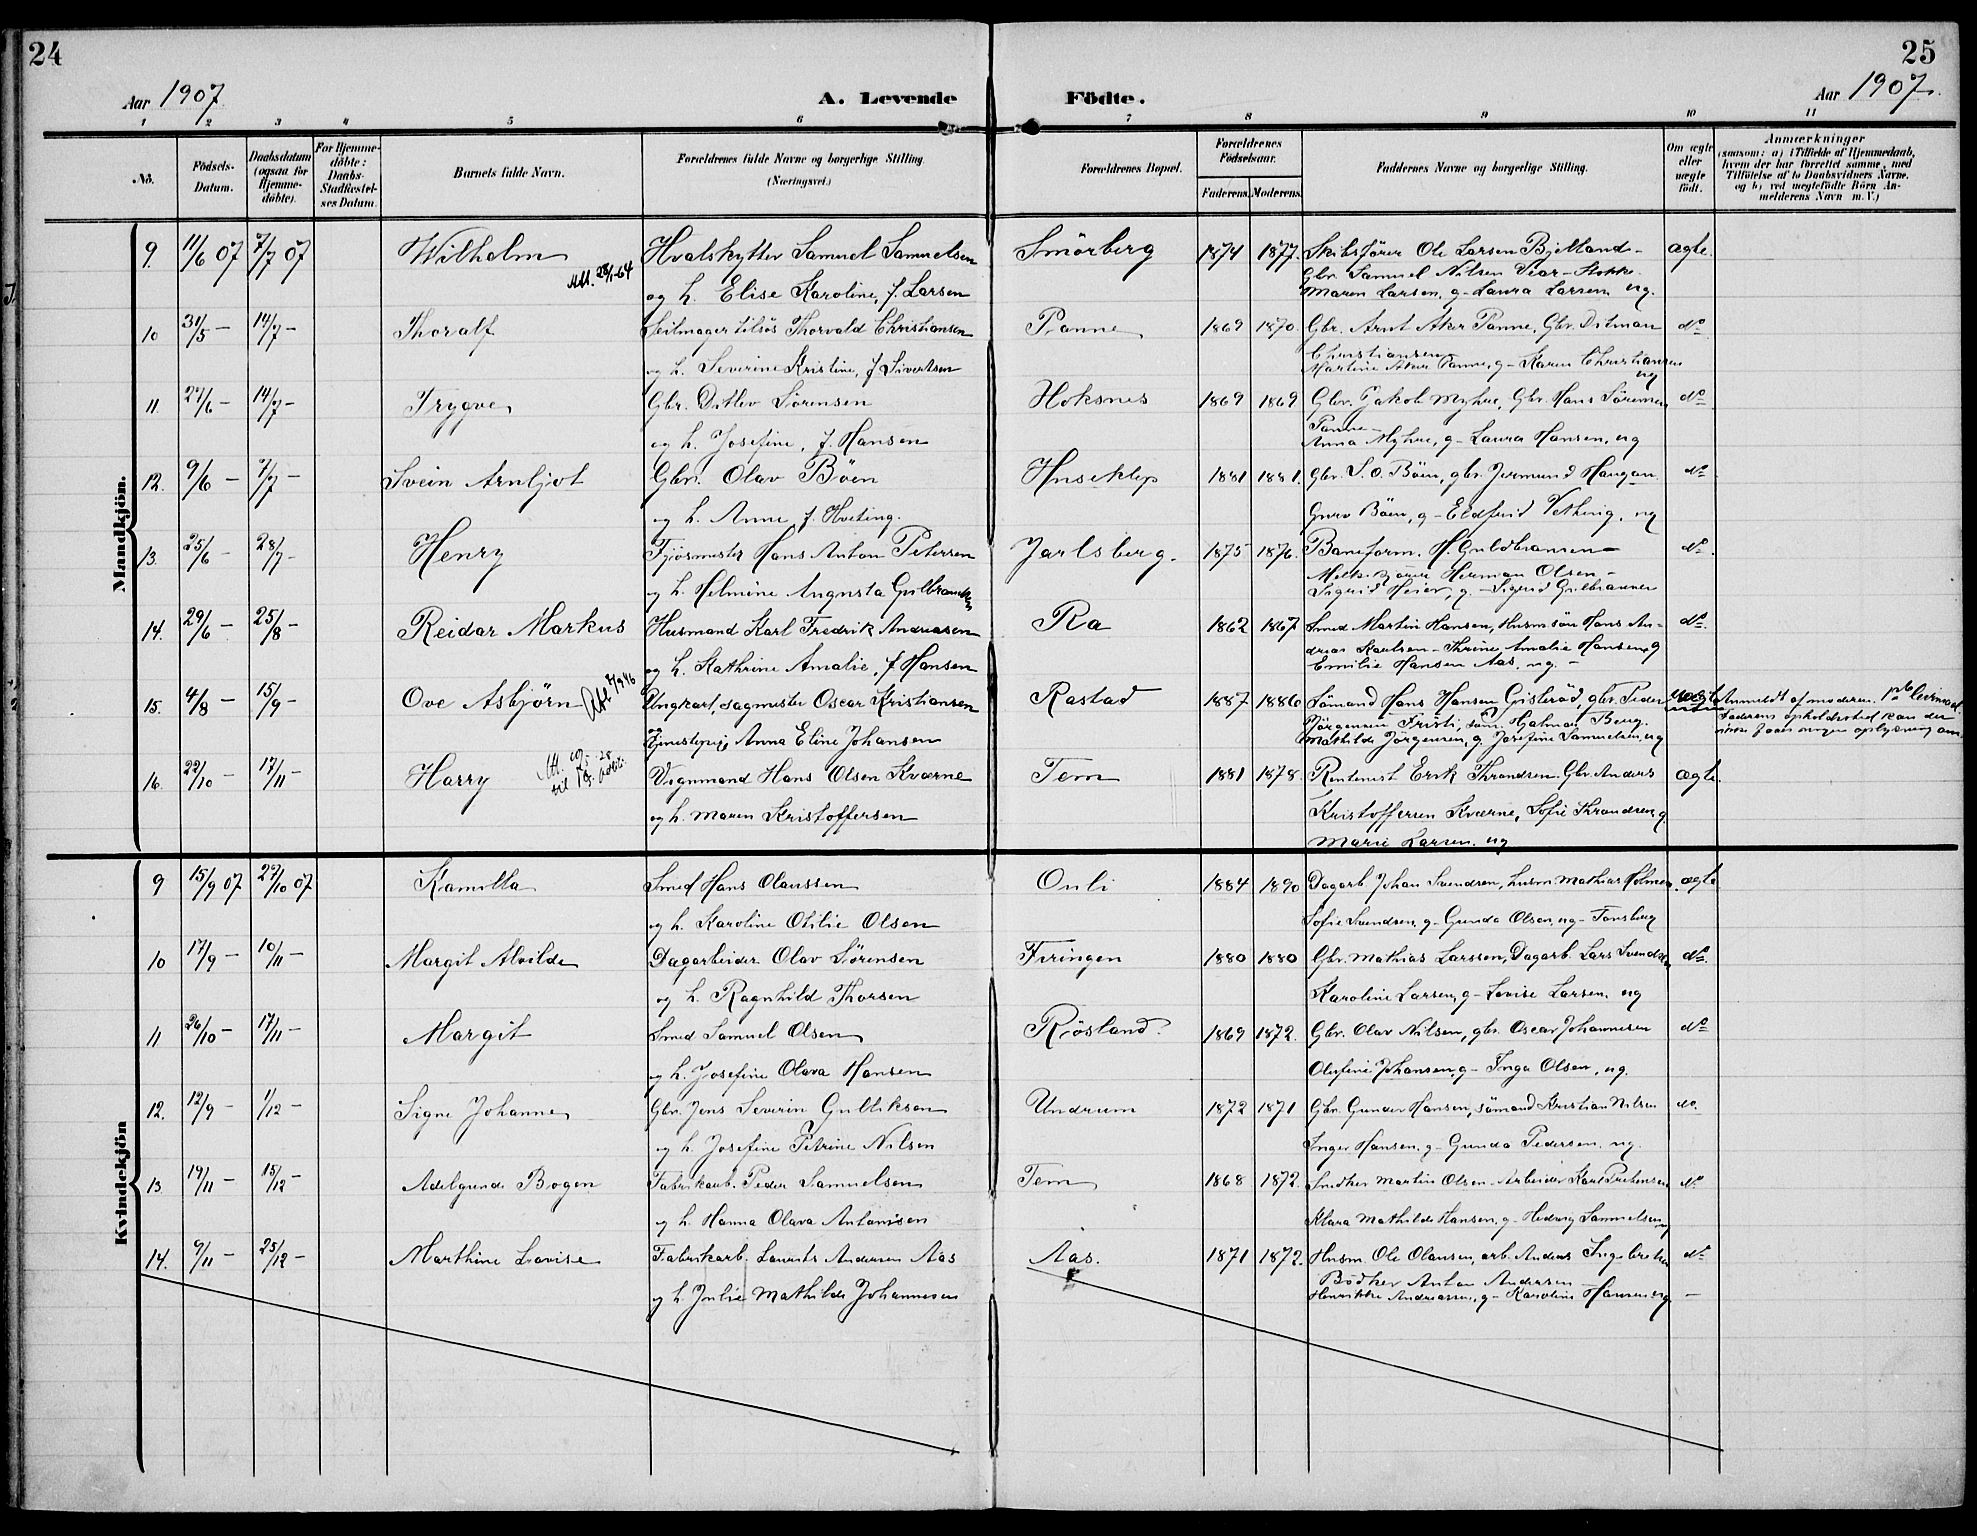 24
25
Aar 1907
A. Levende
Födte.
Aar 1907.
1 2 3 4 5 6 7 8 9 10 11
No.
Födsels-Datum.
Daabsdatum (ogsaa for Hjemme-döbte).
For Hjemme-döbte: Daabs-Stadfæstel-ses Datum.
Barnets fulde Navn.
Forældrenes fulde Navne og borgerlige Stilling. (Næringsvei.)
Forældrenes Bopæl.
Forældrenes Födselsaar.
Faderens. Moderens.
Faddernes Navne og borgerlige Stilling.
Om ægte eller uægte födt.
Anmærkninger
(saasom: a) i Tilfælde af Hjemmedaab, hvem der har forrettet samme, med Tilföielse af to Daabsvidners Navne, og b) ved uægtefödte Börn An-melderens Navn m.V.)
Mandkjön.
9. 11/6 07 7/7 07 Wilhelm Hvalskytter Samuel Samuelsen Smörberg 1874 1877. Skibsförer Ole Larsen Bjelland - ægte.
Att. 28/1-64
Gbr. Samuel Nilsen Vear - Stokke.
og h. Elise Karoline, f. Larsen Maren Larsen, g - Laura Larsen ug.
10 31/5 - 14/7 - Thoralf Seilmager tilsös Thorvald Christiansen Panne 1869 1870. Gbr. Arnt Aker Panne, Gbr. Ditman do
Christiansen
og h. Severine Kristine, f Sivertsen Martine Aker Panne, g - Karen Christiansen
ug
11. 27/6 - 14/7 - Trygve Gbr. Ditlev Sörensen Hoksnes 1869 1869 Gbr. Jakob Myhre, Gbr. Hans Sörensen do
Panne -
og h. Josefine, f. Hansen Anna Myhre, g - Laura Hansen, ug
12. 9/6 - 7/7 - Svein Arnljot Gbr. Olav Böen Huseklep 1881 1881. Gbr. S. O. Böen, gbr. Jermund Haugan do
og h. Anne, f. Hveting. Guro Böen, g - Eldfrid ug
13. 25/6 - 28/7 - Henry Fjösmester Hans Anton Petersen Jarlsberg. 1875 1876. Baneform. H. Guldbransen - do
Herman Olsen -
og h. Helmine Augusta Gulbrandsen Sigrid Heier, g. - Sigrid Gulbransen
14. 29/6 - 25/8 - Reidar Markus Husmand Karl Fredrik Andreasen Ra 1862 1867 Smed Martin Hansen, Husm sön Hans An-do.
dreas Karlsen - Thrine Amalie Hansen, g
og h. Kathrine Amalie, f Hansen Emilie Hansen Aas, ug. -
15. 4/8 - 15/9 - Ove Asbjörn Ungkarl, sagmester Oscar Kristiansen Rastad 1887 1886 Sömand Hans Hansen Gisleröd, gbr. Peder uægte Anmeldt af moderen.
og Jörgensen Fristi, söm. Hjalmar Berg. Faderens opholdssted kan der
Tjenestepige Anna Eline Johansen Mathilde Jörgensen, g. Josefine Samuelsen, ug ikke faaes nogen oplysning om
16. 22/10 - 17/11 - Harry Vognmand Hans Olsen Kværne Tem 1881 1878. Rentenist Erik Thrandsen. Gbr. Anders ægte.
Kristoffersen Kværne, Sofie Thrandsen, g.
og h. Maren Kristoffersen Marie Larsen. ug
Kvindekjön
9 15/9 07 27/10 07 Kamilla Smed Hans Olaussen Onli 1884 1890 Dagarb Johan Svendsen, husm Mathias Holmen ægte
og h. Karoline Otilie Olsen Sofie Svendsen, g - Gunda Olsen, ug - Tønsberg
10 17/9 - 10/11 - Margit Alvilde Dagarbeider Olav Sörensen Firingen 1880 1880 Gbr. Mathias Larssen, Dagarb. Lars Svendsen do.
og h. Ragnhild Thorsen Karoline Larsen, g - Lovise Larsen, ug
11 26/10 - 17/11 - Margit Smed Samuel Olsen Rösland. 1869 1872. Gbr. Olav Nilsen, gbr. Oscar Johannesen do
og h. Josefine Olava Hansen Olufine Johansen, g - Inga Olsen, ug.
12. 12/9 - 1/12 - Signe Johanne Gbr. Jens Severin Gulliksen Undrum 1872 1871 Gbr. Gunder Hansen, sömand Kristian Nilsen do.
og h. Josefine Petrine Nilsen Inger Hansen, g - Gunda Pedersen, ug.
13. 19/11 - 15/12 - Adelgunde Bogen Fabrikarb. Peder Samuelsen Tem 1868 1872. Snedker Martin Olsen - Arbeider Karl do
og h. Hanna Olava Antonisen Klara Mathilde Hansen, g - Hedvig Samuelsen, ug
14. 9/11 - 25/12 - Marthine Lovise Fabrikarb. Laurits Andersen Aas Aas. 1871 1872. Husm Ole Olausen, arb. Anders Ingebretsen do
Bödker Anton Andersen -
og h. Julie Mathilde Johannesen Henrikke Andreassen, g - Karoline Hansen ug -